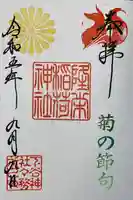 奉拝
菊の節句
稲荷
神社
令和五年
九月九日